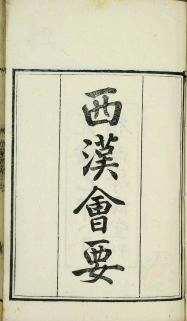 西漢會要